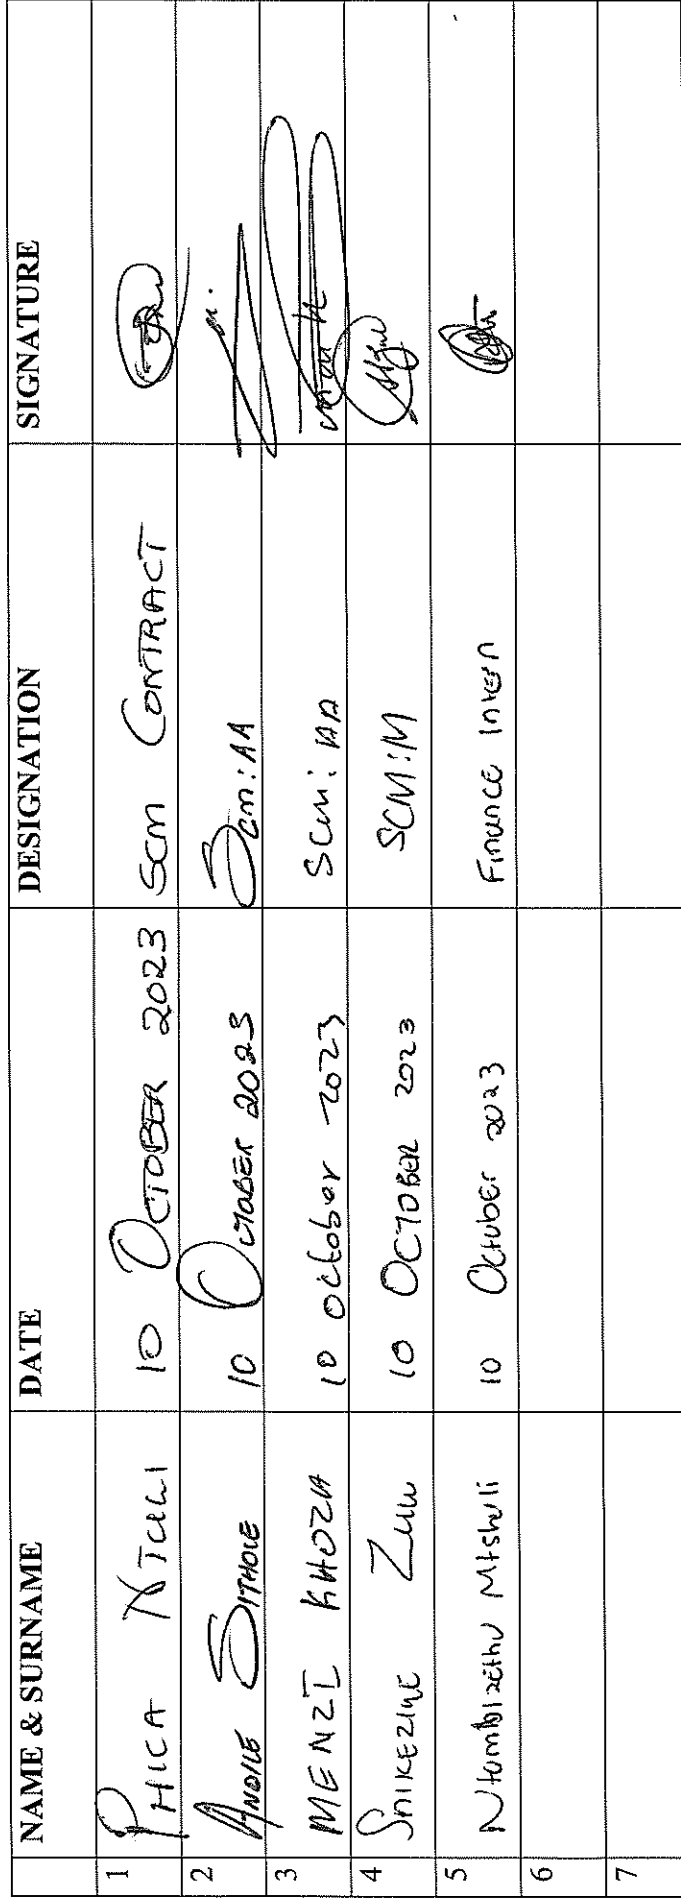 NAME & SURNAME DATE DESIGNATION SIGNATURE
1 PHICA NTULI 10 OCTOBER 2023 SCM CONTRACT
2 ANDILE SITHOLE 10 OCTOBER 2023 SCM:AA
3 MENZI KHOZA 10 october 2023 SCM:
4 SNIKEZIWE ZULU 10 OCTOBER 2023 SCM:M
5 Ntombizethu Mtshali 10 October 2023 Finance Intern
6
7